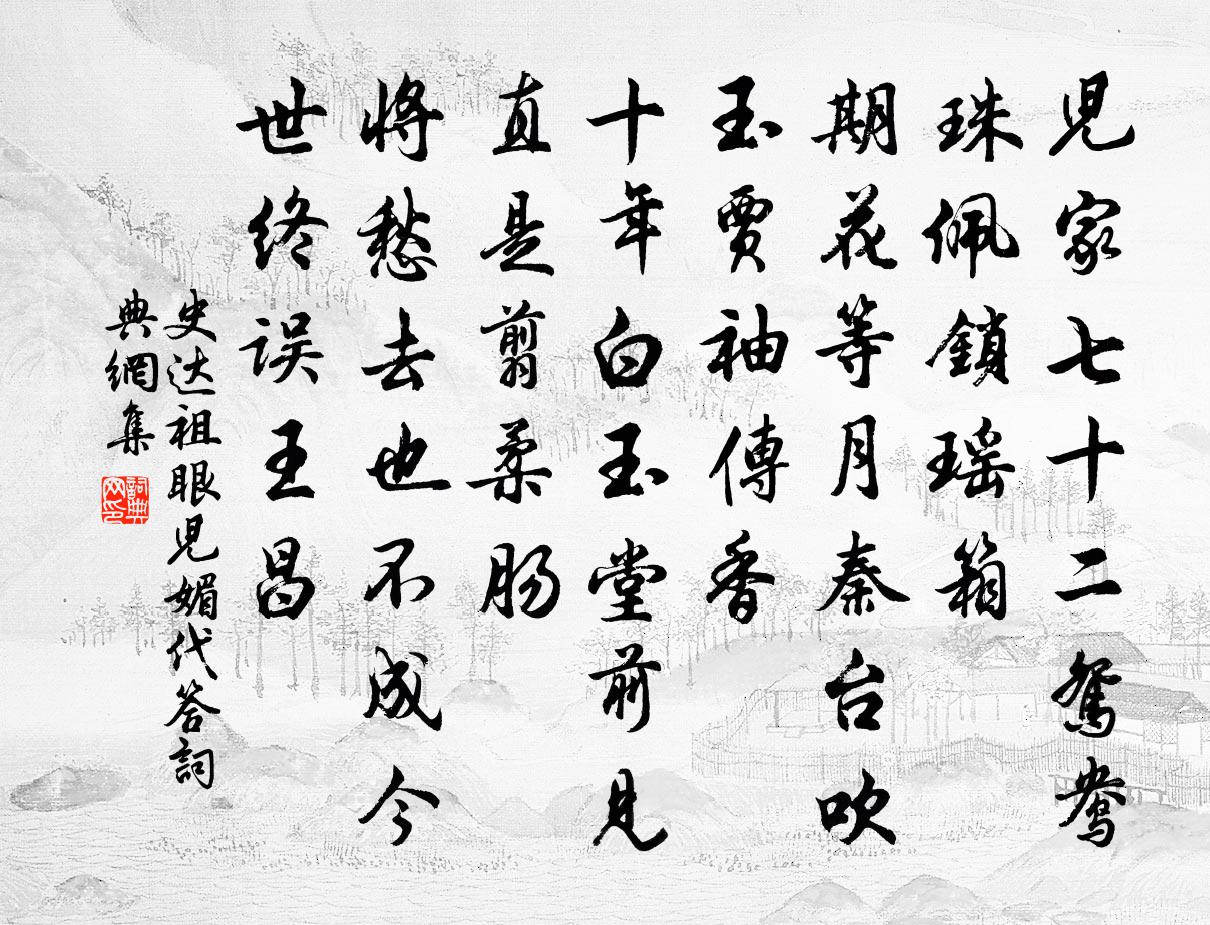 児家七十二鸳鸯
珠佩鎖瑶箱
期花等月秦台吹
玉贾袖傳香
十年白玉堂前見
直是翦柔肠
将愁去也不成今
世终误王昌
史达祖眼児媚代答詞
典網集
詞典
网印